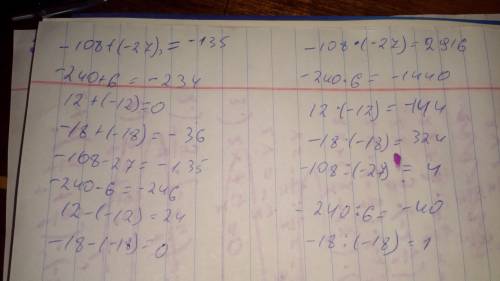 -108+(-27) = -135
-240+6 = -234
12+(-12)=0
-18+(-18)= -36
-108-27 = -135
-240-6 = -246
12-(-12) = 24
-18-(-18)= 0
-108·(-27) = 2916
-240·6 = -1440
12·(-12) = -144
-18·(-18)= 324
-108÷(-27) = 4
-240÷6= -40
-18÷(-18) = 1